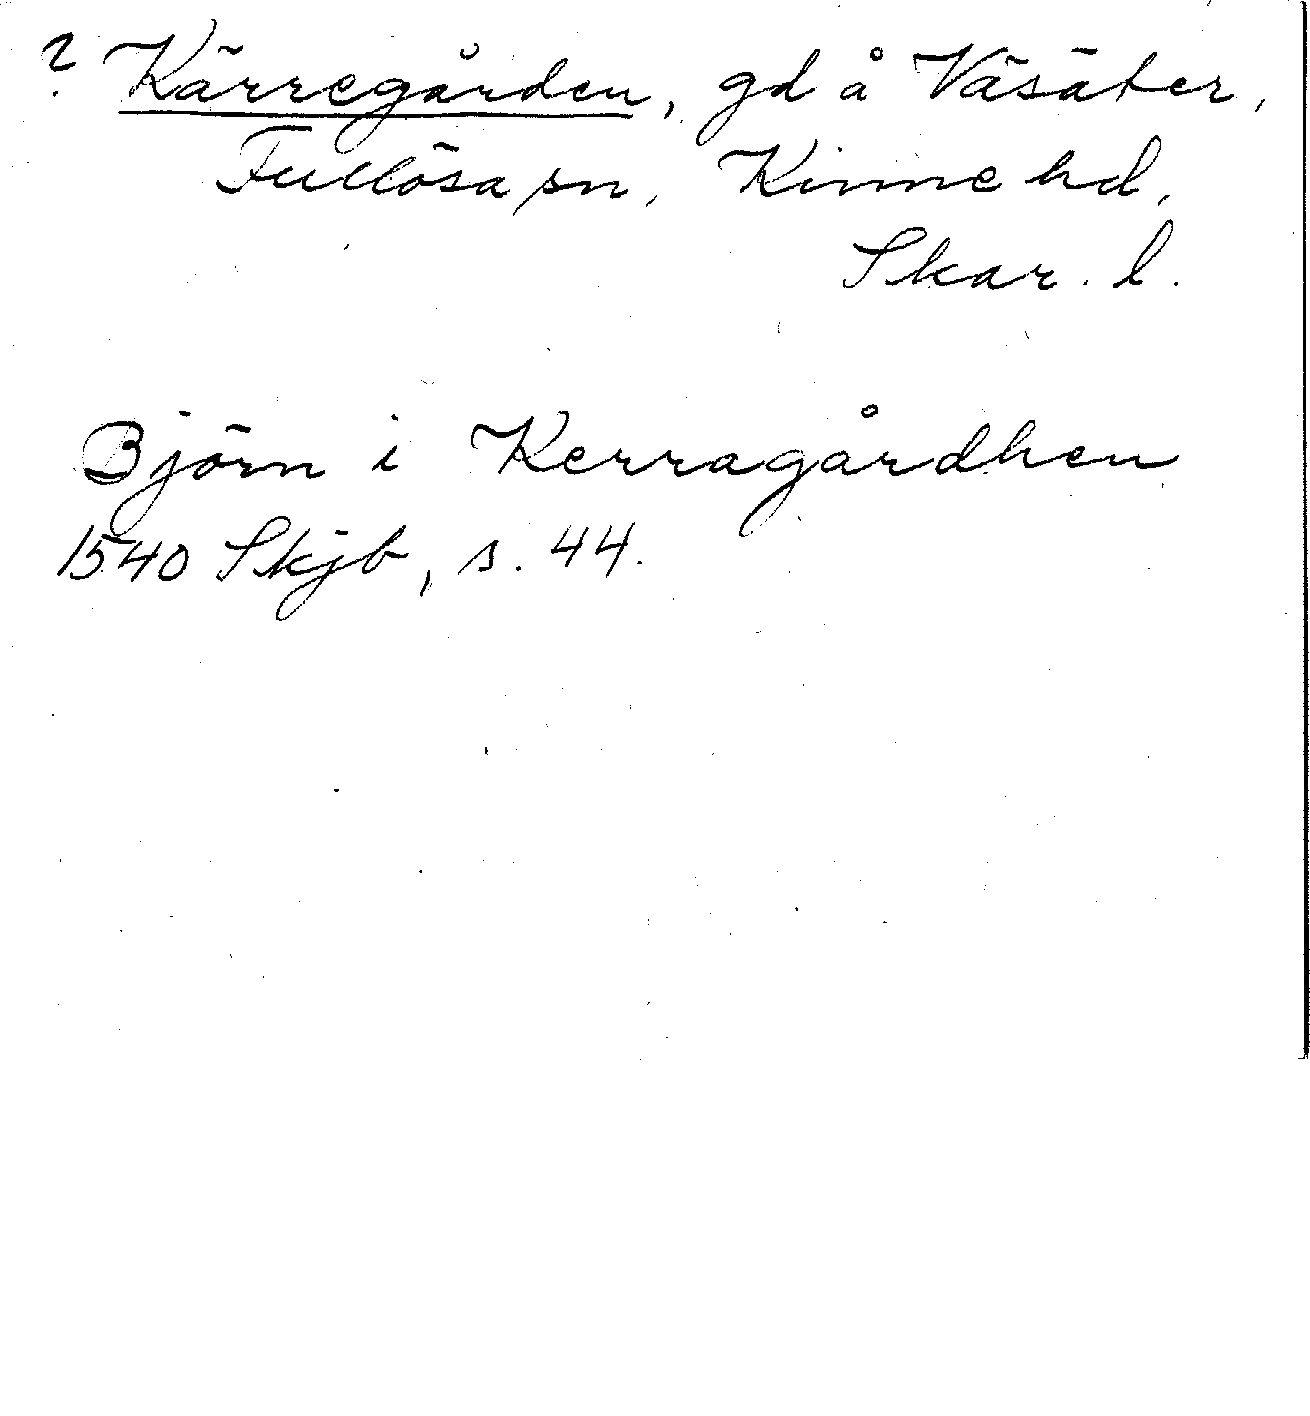 ? Kärregården, gd å Väsäter,
Fullösa sn, Kinne hd,
Skar. l.
Björn i Kerragårdhen
1540 Skjb, s. 44.